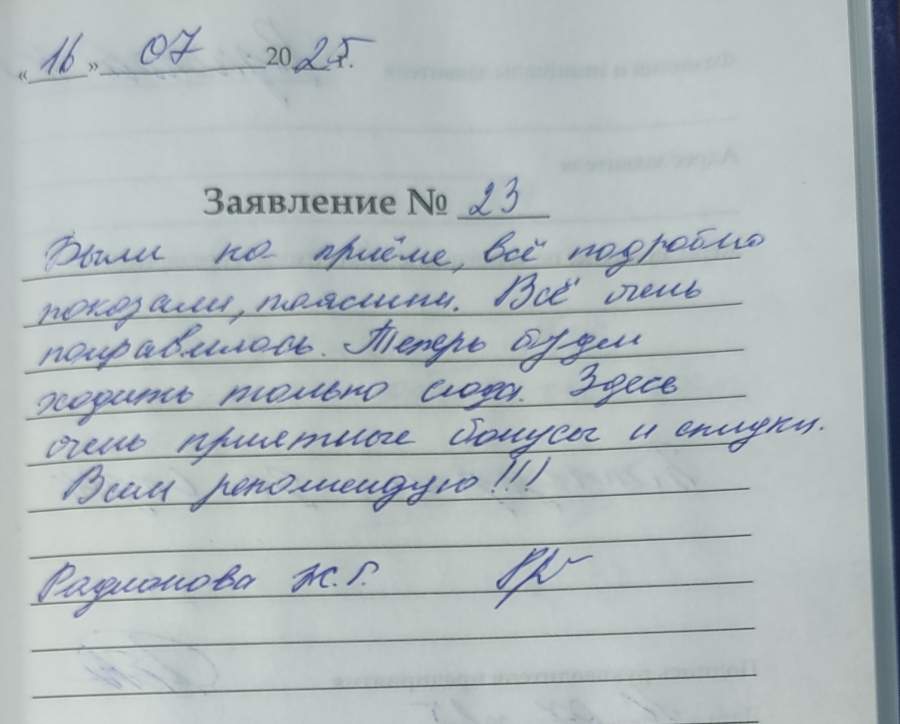 «16» 07 2025г.
Заявление № 23
Были на приёме, всё подробно
показали, пояснили. Всё очень
понравилось. Теперь будем
ходить только сюда. Здесь
очень приятные бонусы и скидки.
Всем рекомендую!!!
Радионова Ж.Г.